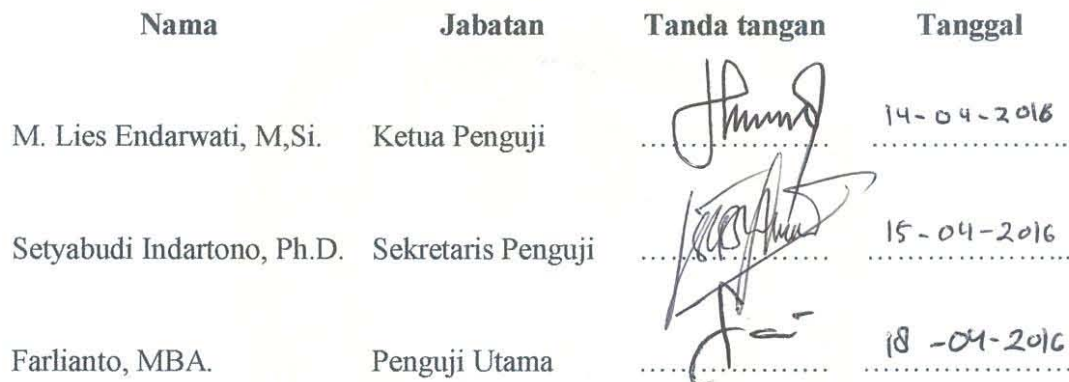 Nama Jabatan Tanda tangan Tanggal
M. Lies Endarwati, M,Si. Ketua Penguji .................... 14-04-2016
Setyabudi Indartono, Ph.D. Sekretaris Penguji .................... 15-04-2016
Farlianto, MBA. Penguji Utama .................... 18-04-2016